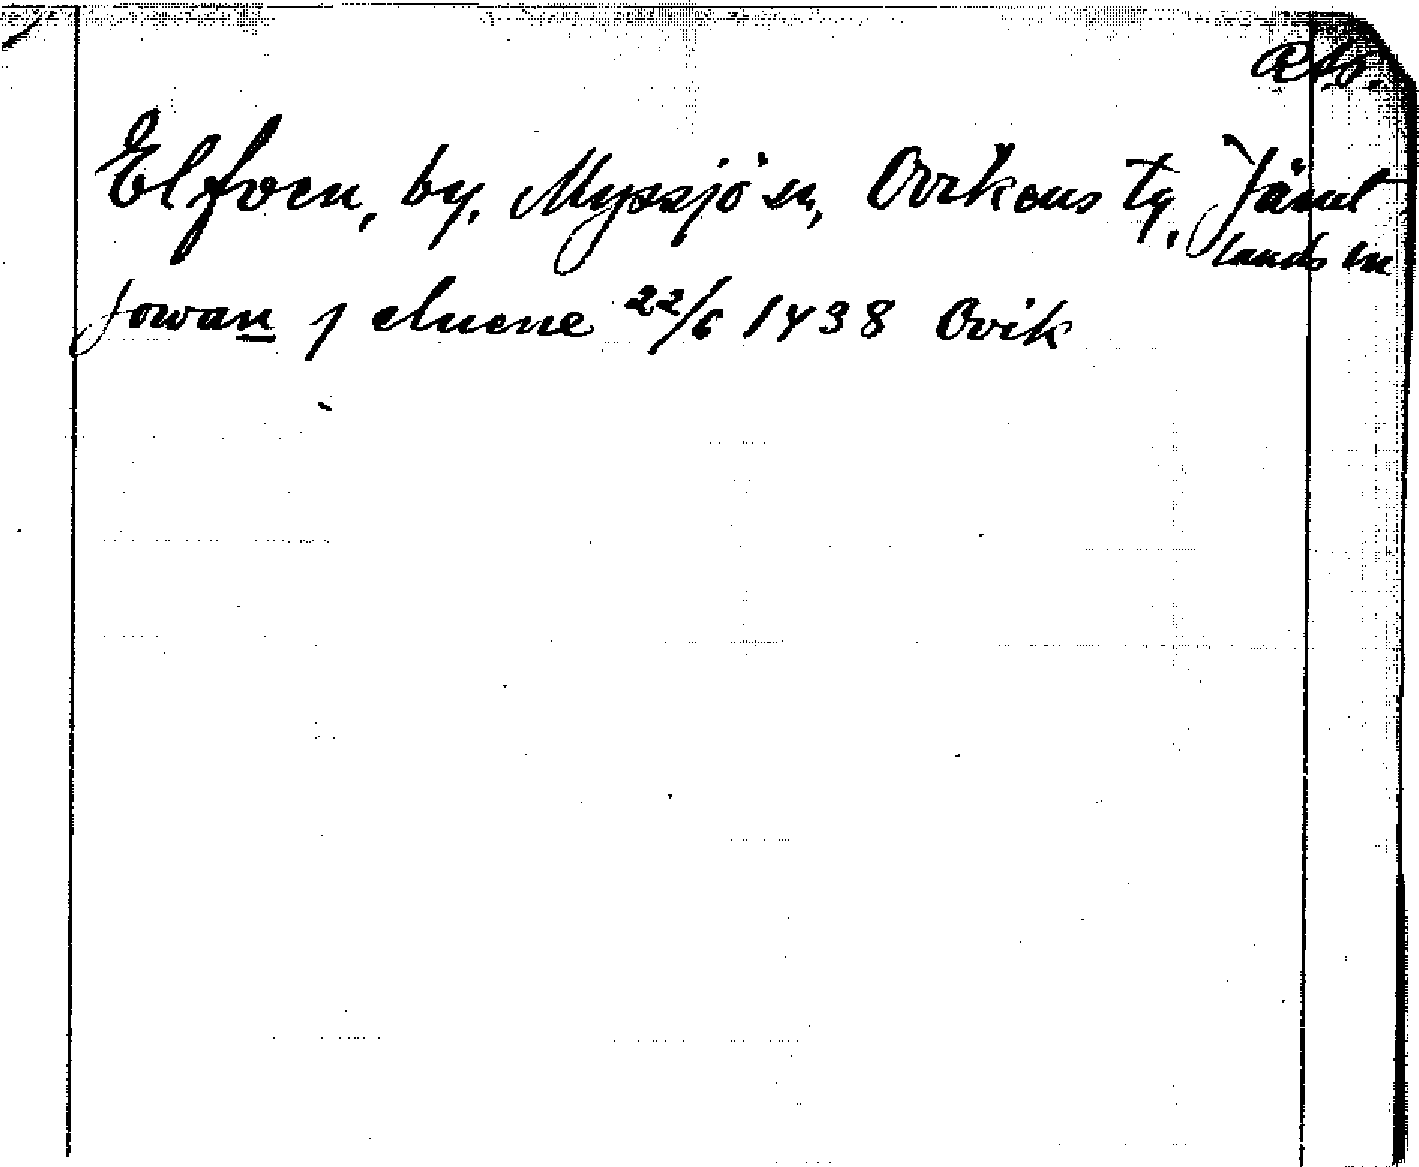 Elfven, by, Myssjö sn, Ovikens tg, Jämt
lands län
Jowan j eluene 22/6 1438 Ovik